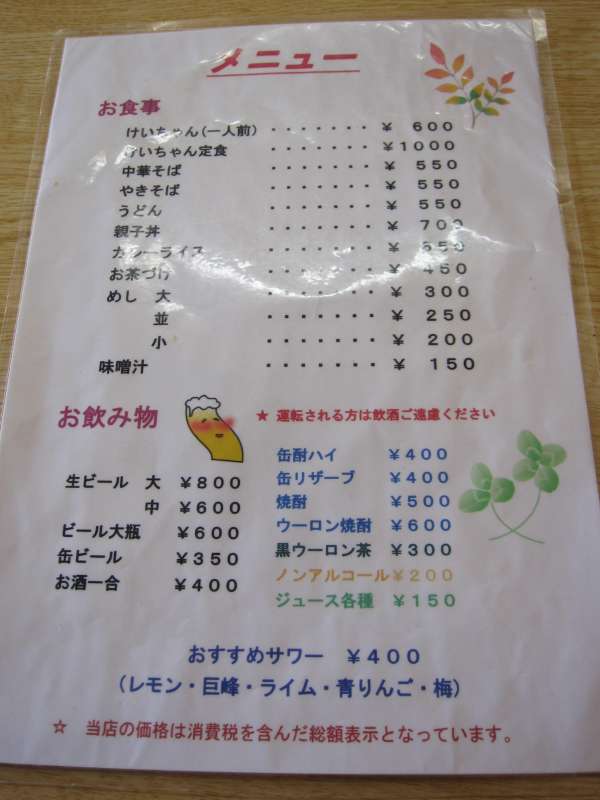 メニュー
お食事
けいちゃん(一人前) ・・・・・・・ ¥ 600
けいちゃん定食 ・・・・・・・ ¥1000
中華そば ・・・・・・・ ¥ 550
やきそば ・・・・・・・ ¥ 550
うどん ・・・・・・・ ¥ 550
親子丼 ・・・・・・・ ¥ 700
カレーライス ・・・・・・・ ¥ 650
お茶づけ ・・・・・・・ ¥ 450
めし 大 ・・・・・・・ ¥ 300
並 ・・・・・・・ ¥ 250
小 ・・・・・・・ ¥ 200
味噌汁 ・・・・・・・ ¥ 150
お飲み物
★ 運転される方は飲酒ご遠慮ください
生ビール 大 ¥800
中 ¥600
ビール大瓶 ¥600
缶ビール ¥350
お酒一合 ¥400
缶酎ハイ ¥400
缶リザーブ ¥400
焼酎 ¥500
ウーロン焼酎 ¥600
黒ウーロン茶 ¥300
ノンアルコール¥200
ジュース各種 ¥150
おすすめサワー ¥400
(レモン・巨峰・ライム・青りんご・梅)
☆ 当店の価格は消費税を含んだ総額表示となっています。